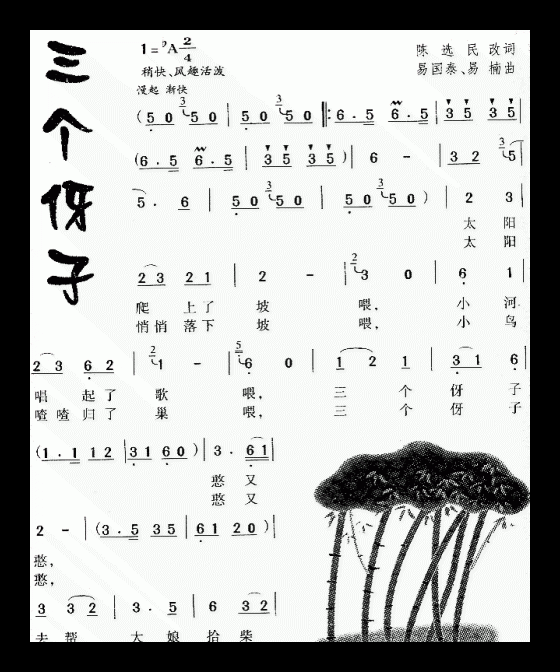 三个伢子
1=♭A 2/4
陈选民 改词
稍快、风趣活泼
易国泰、易楠曲
慢起 渐快
(5 0 3 5 0 | 5 0 3 5 0 ‖: 6 . 5 6 . 5 | 3 5 3 5 |
(6 . 5 6 . 5 | 3 5 3 5 ) | 6 - | 3 2 3 5 |
5 . 6 | 5 0 3 5 0 | 5 0 3 5 0 ) | 2 3 |
太 阳
太 阳
2 3 2 1 | 2 - | 2 3 0 | 6 1 |
爬 上了 坡 喂, 小 河
悄悄 落下 坡 喂, 小 鸟
2 3 6 2 | 2 1 - | 5 6 0 | 1 2 1 | 3 1 6 |
唱 起了 歌 喂, 三 个 伢 子
喳喳 归了 巢 喂, 三 个 伢 子
(1 . 1 1 2 | 3 1 6 0 ) | 3 . 6 1 |
憨 又
憨 又
2 - | (3 . 5 3 5 | 6 1 2 0 ) |
憨,
憨,
3 3 2 | 3 . 5 | 6 3 2 |
去 帮 大 娘 拾 柴